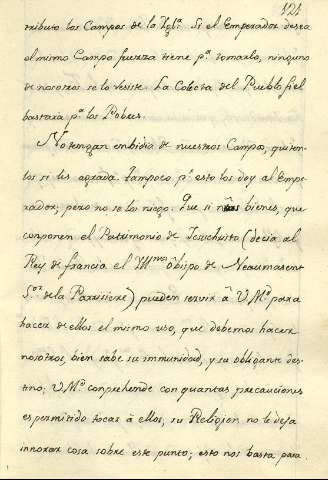 124
tributo los Campos de la Ygl.ª Si el Emperador desea
el mismo Campo fuerza tiene p.ª tomarlo, ninguno
de nosotros se lo resiste. La Colecta del Pueblo fiel
bastará p.ª los Pobres.
No tengan embidia de nuestros Campos, quiten-
los si les agrada. Tampoco p.r esto los doy al Empe-
rador; pero no se los niego. Que si ñros bienes, que
componen el Patrimonio de Jesuchristo (decia al
Rey de francia el Yll.mo Obispo de
S.or de la Parisiere) pueden servir â V.M.d para
hacer de ellos el mismo uso, que debemos hacer
nosotros, bien sabe su immunidad, y su obligante des-
tino; V.M.d conprehende con quantas precauciones
es permitido tocar â ellos; su Religion no le deja
innorar cosa sobre este punto; esto nos basta para